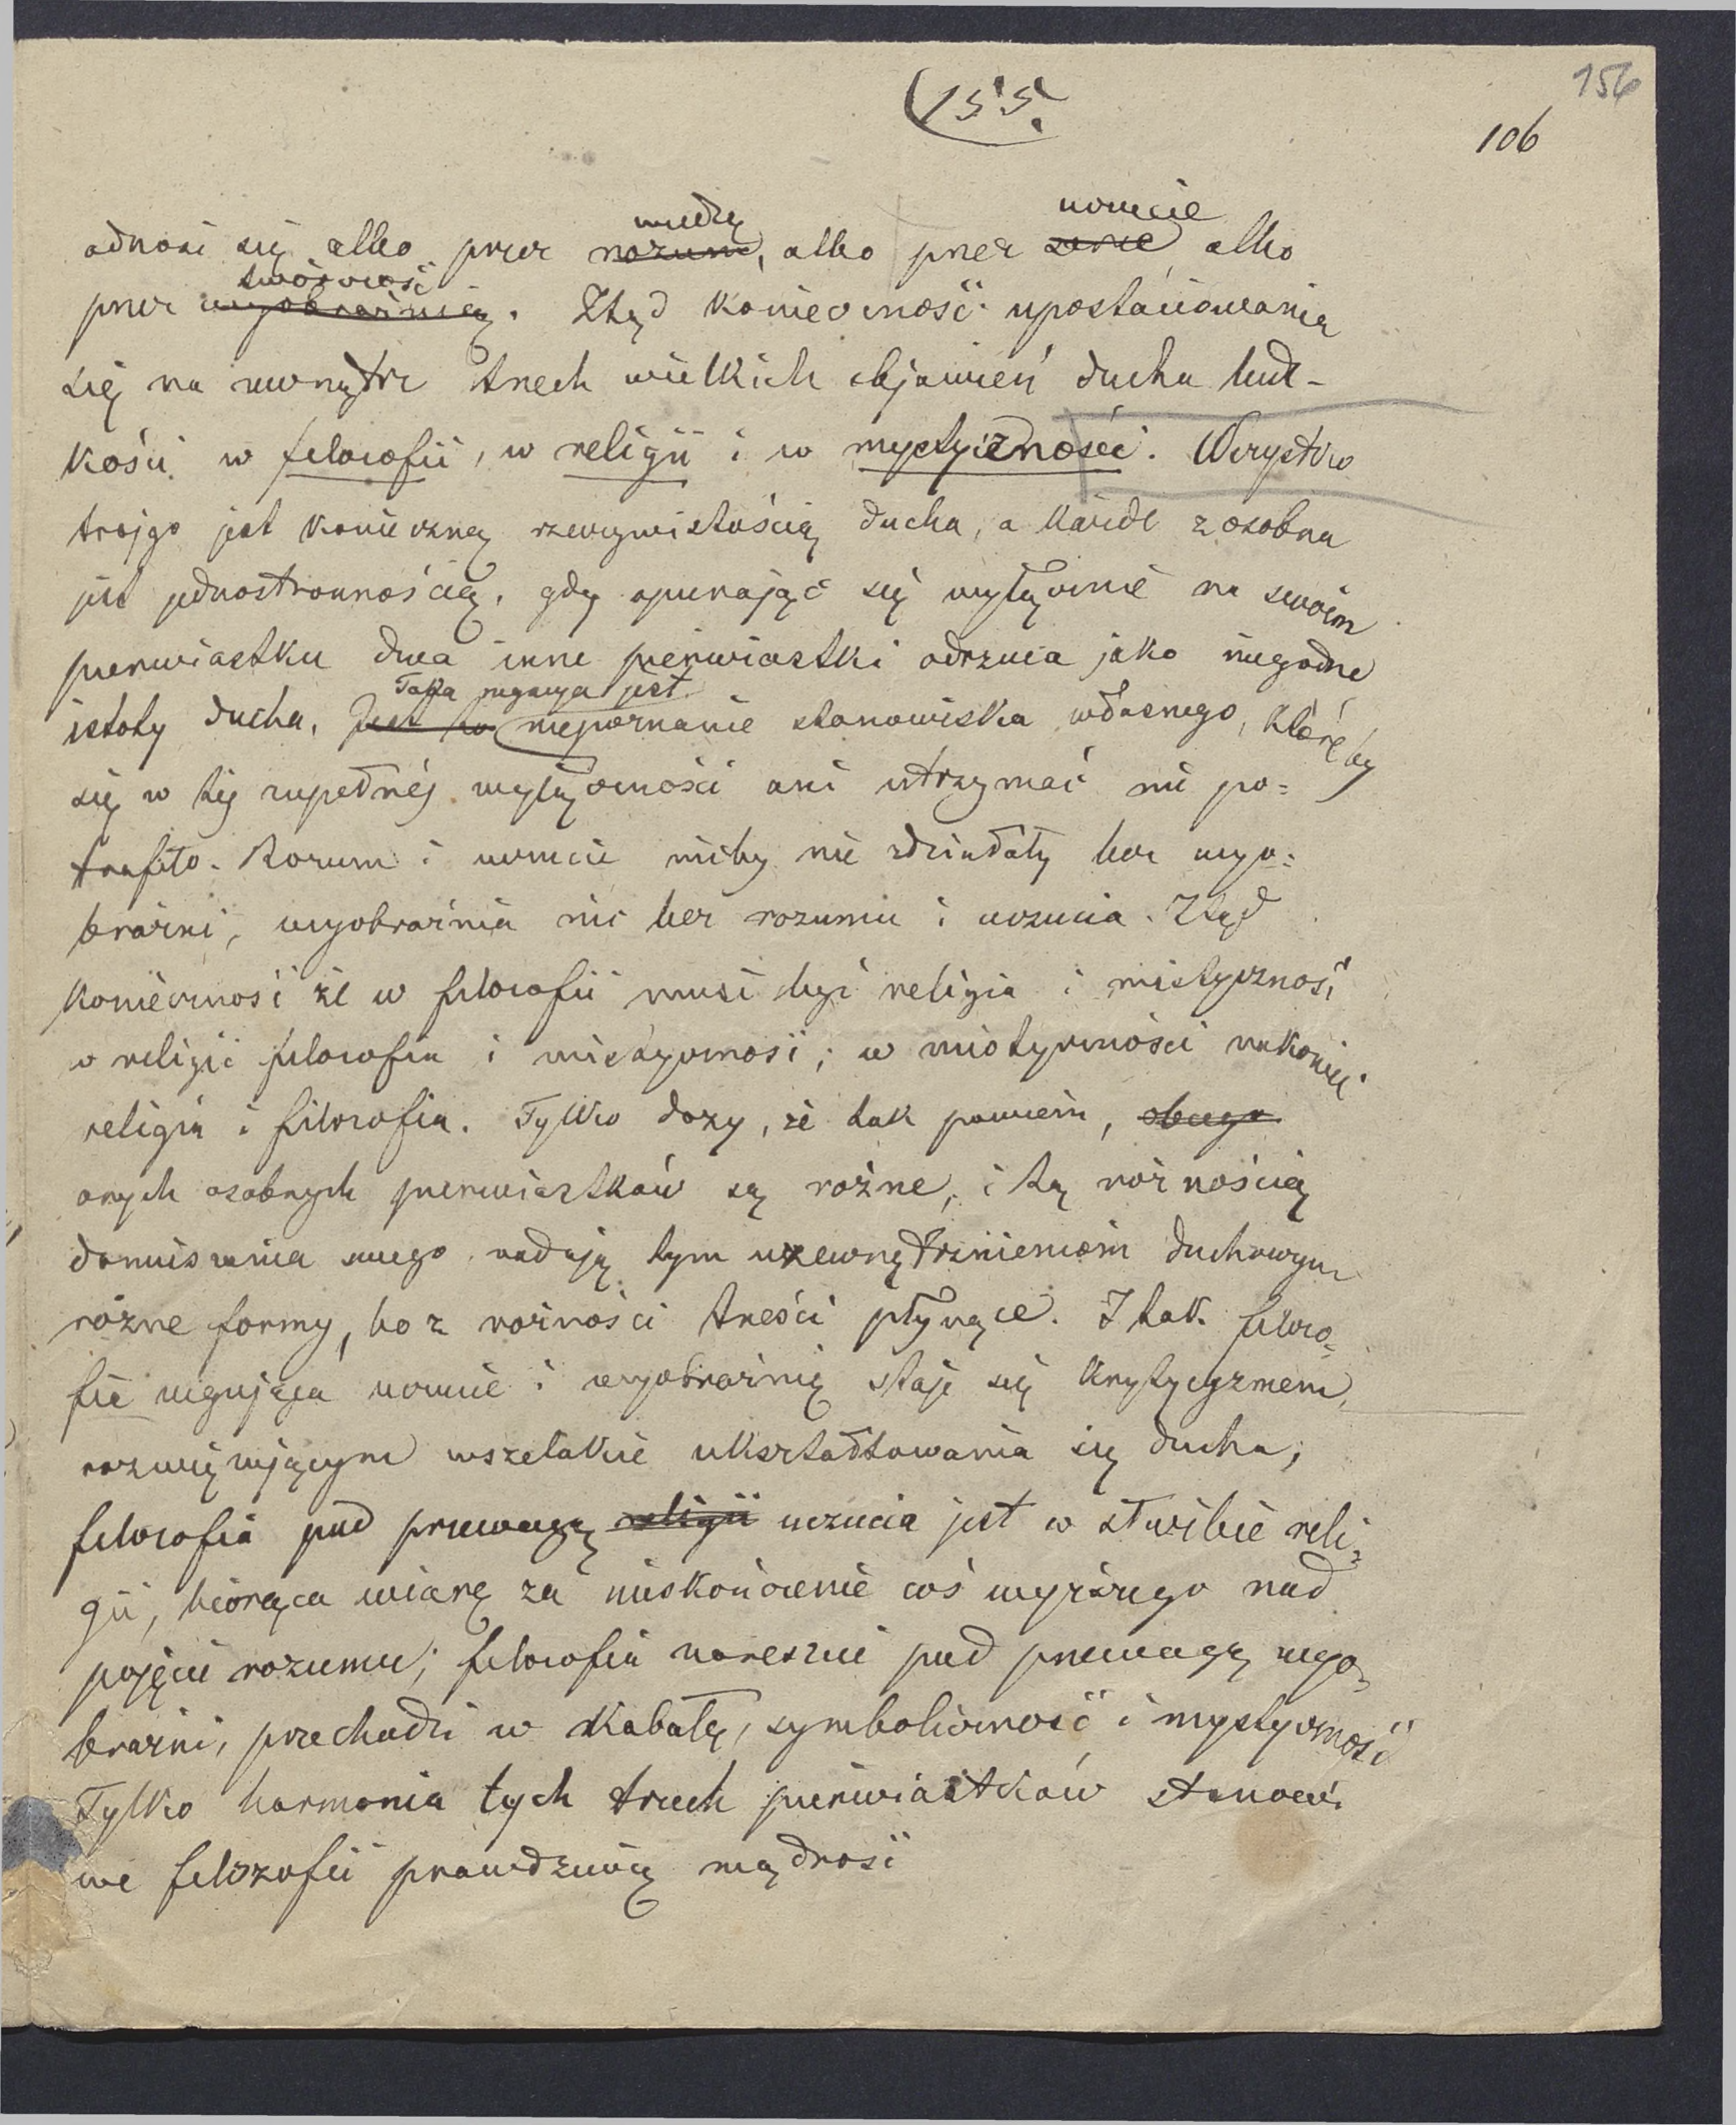 155.
156
106
wiedzę uczucie
odnosi się albo przez rozum, albo przez serce albo
twórczość
przez wyobraźnię. Ztąd konieczność upostaciowania
się na zewnątrz trzech wielkich objawień ducha ludz-
kości w filozofii, w religii i w mystyczności. Wszystko
trojgo jest konieczną rzeczywistością ducha, a każde z osobna
jest jednostronnością, gdy opierając się wyłącznie na swoim
pierwiastku dwa inne pierwiastki odrzuca jako niegodne
Taka negacya jest
istoty ducha. Jest to niepoznanie stanowiska własnego, któreby
się w téj zupełnéj wyłączności ani utrzymać nie po=
trafiło. Rozum i uczucie nicby nie zdziałały bez wyo=
braźni, wyobraźnia nic bez rozumu i uczucia. Ztąd
konieczność że w filozofii musi być religia i mistyczność
w religii filozofia i mistyczność; w mistyczności nakoniec
religia i filozofia. Tylko dozy, że tak powiem,
onych osobnych pierwiastków są rożne, i tą rożnością
domieszania swego nadają tym uzewnętrznieniom duchowym
rożne formy, bo z rożności treści płynące. I tak filozo=
fia negująca uczucie i wyobraźnię staje się krytycyzmem,
rozwięzującym wszelakie ukształtowania się ducha;
filozofia pod przewagą religii uczucia jest w służbie reli=
gii, biorąca wiarę za nieskończenie coś wyższego nad
pojęcie rozumu; filozofia nareszcie pod przewagą wyo=
braźni, przechodzi w kabałę, symboliczność i mystyczność
Tylko harmonia tych trzech pierwiastków stanowi
we filozofii prawdziwą mądrość